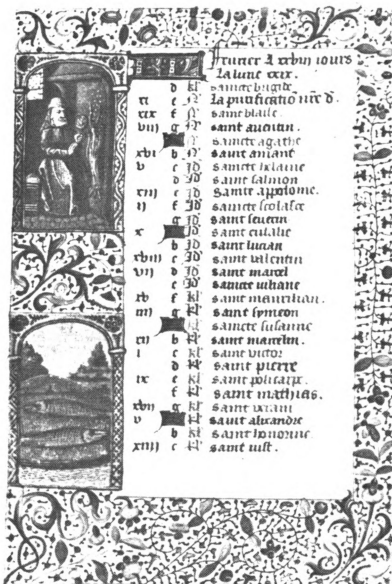 feurier a xxviij iours
La lune xxix.
d kl sainte brigide
xi e N La purificatio nre d.
xix f N saint blaise
viij g N saint auentin
N saincte agathe
xvi b N saint amant
v c Id saincte helaine
d Id saint salmon
xiij e Id sainte appolonie.
ij f Id saincte scolasce
g Id saint seuerin
x Id saint eulalie
b Id saint lucian
xviij c Id saint valentin
vij d Id saint marcel
e Id saincte iuliane
xv f kl saint
iiij g kl saint symeon
kl saincte susanne
xij b kl saint marcelin.
i c kl saint victor
d kl saint pierre
ix e kl saint policarpe.
f kl saint mathias.
xvij g kl saint
v kl saint alixandre
b kl saint honorine.
xiiij c kl saint iust.